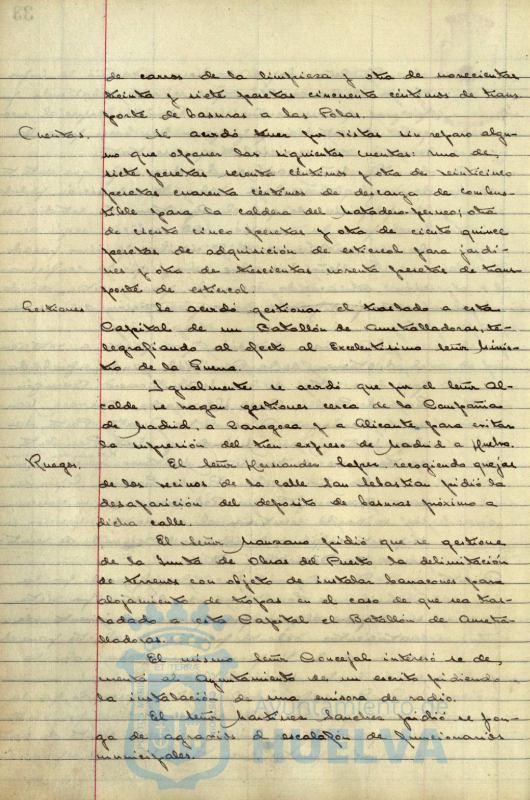 de carros de la limpieza y otra de novecientas
treinta y siete pesetas cincuenta céntimos de trans
porte de basuras a las Potas.
Cuentas. Se acordó traer por vistas sin reparo algu-
no que oponer las siguientes cuentas: una de,
siete pesetas sesenta céntimos y otra de veinticinco
pesetas cuarenta céntimos de descarga de combus-
tible para la caldera del Matadero-perneo; otra
de ciento cinco pesetas y otra de ciento quince
pesetas de adquisición de estiercol para jardi-
nes y otra de trescientas noventa pesetas de trans-
porte de estiercol.
Gestiones Se acordó gestionar el traslado a esta
Capital de un Batallón de Ametralladoras, te-
legrafiando al efecto al Excelentísimo señor Minis-
tro de la Guerra.
Igualmente se acordó que por el señor Al-
calde se hagan gestiones cerca de la Compañía
de Madrid, a Zaragoza y a Alicante para evitar
la supresión del tren expreso de Madrid a Huelva.
Ruegos. El señor Hernandez Lopez, recogiendo quejas
de los vecinos de la calle San Sebastian pidió la
desaparición del deposito de basuras próximo a
dicha calle.
El señor Manzano pidió que se gestione
de la Junta de Obras del Puerto la delimitación
de terrenos con objeto de instalar barracones para
alojamiento de tropas en el caso de que sea tras-
ladado a esta Capital el Batallón de Ametra-
lladoras.
El mismo señor Concejal interesó se de,
cuenta al Ayuntamiento de un escrito pidiendo
la instalación de una emisora de radio.
El señor Martinez Sanchez pidió se pon-
ga de agravios el escalafón de funcionarios
municipales.
Ayuntamiento de
HUELVA